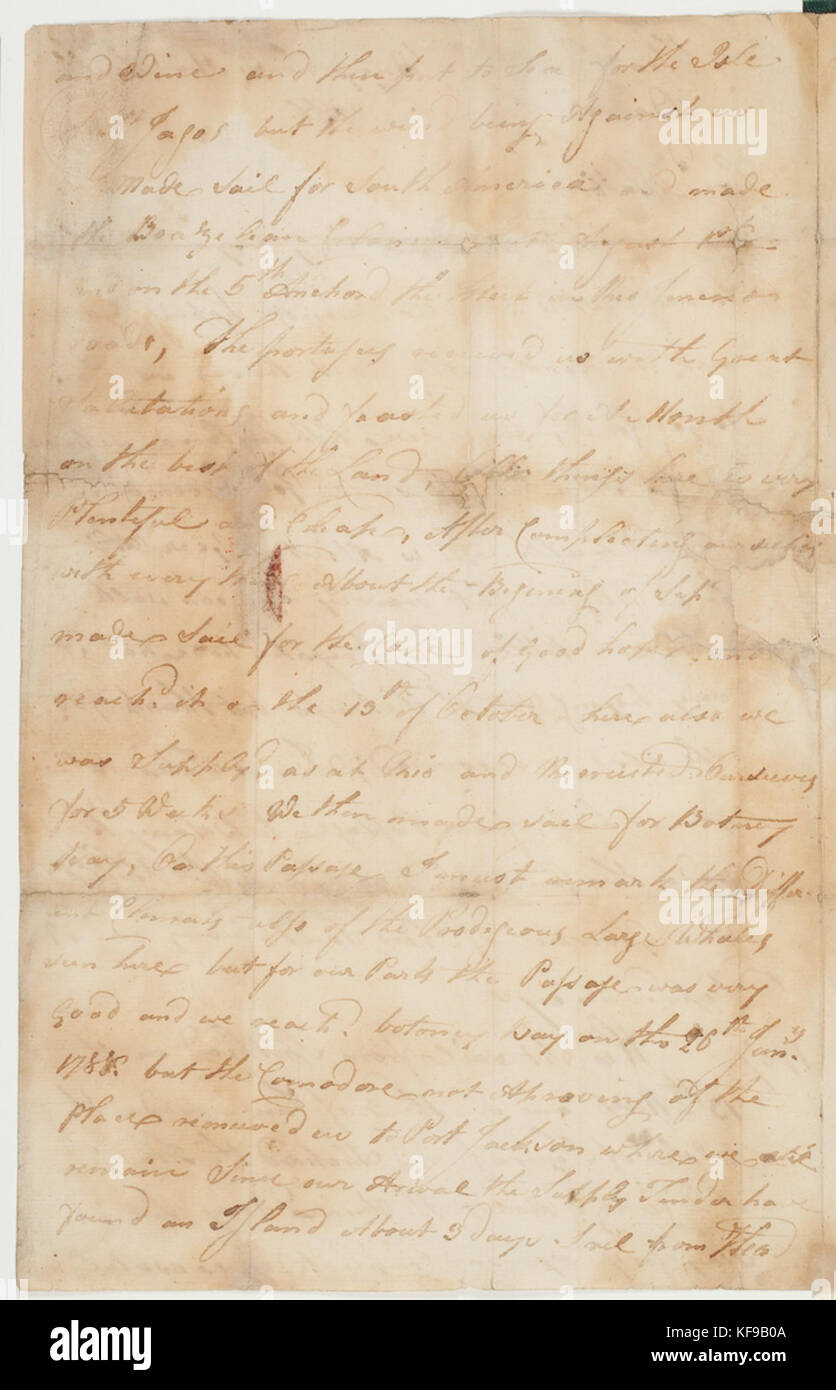 and Wine and then put to Sea for the Isle
Jagos but the wind being Against us
Made Sail for South America and made
the August
on the 5th Anchord the
roads, The portugues received us with Great
Salutations and feasted us for A Month
on the best of the Land, things here is very
Plentiful and Cheap, After Compleating ourselves
with every About the Begining of Sepr
made Sail for the Cape of Good hope and
reachd it on the 13th of October here also we
was Supplyd as at Rio and Recruited Ourselves
for 5 Weeks We then made sail for Botney
bay, On this Passage I must remark the Differ-
ent Climats also of the Prodigeous Large Whales
seen here but for our Parts the Passage was very
Good and we reachd botoney bay on the 26th Jany
1788. but the Comodore not Aproving of the
Place remoived us to Port Jackson where we
remain Since our Arival the Supply Tender have
found an Island About 3 Days Sail from
alamy
Image ID: KF9B0A
www.alamy.com